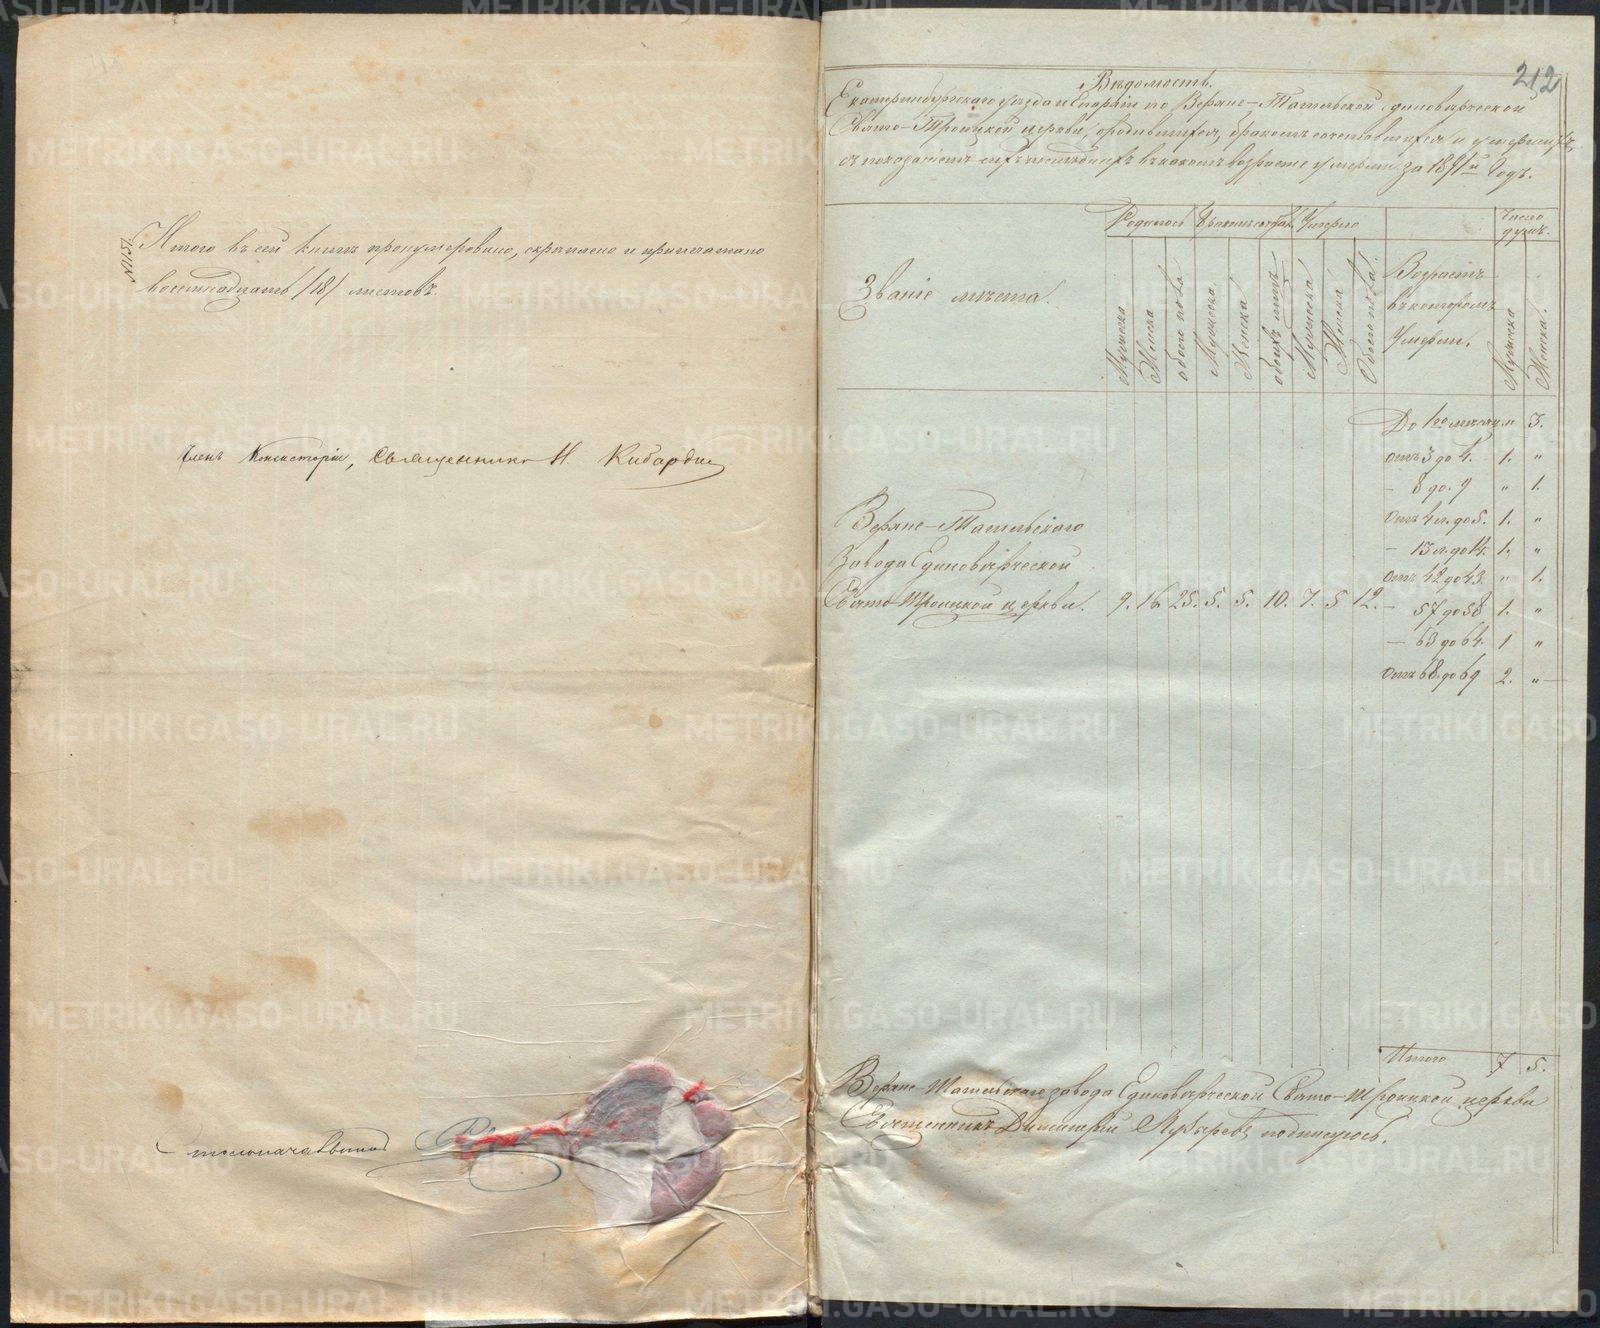 № 1151.
Итого въ сей книгѣ пронумеровано, скрѣплено и припечатано
восемнадцать /18/ листовъ.
Членъ Консисторіи, Священникъ Н. Кибардин
Столоначальникъ
212
Вѣдомость.
Екатеринбургскаго уѣзда и Епархіи по Верхне-Тагильской единовѣрческой
Свято-Троицкой церкви, о родившихся, бракомъ сочетавшихся и умершихъ,
съ показаніемъ сихъ послѣднихъ въ какомъ возрастѣ умерли за 1891й годъ.
Званіе мѣста.
Родилось
Умерло
Число душъ.
Мужеска
Женска
обоего пола
Мужеска.
Женска
обоихъ
Мужеска
Женска
Обоего пола.
Возрастъ
въ которомъ
Умерли.
Мужеска
Женска.
До 1го мѣсяца „ 3.
Отъ 3 до 4. 1. „
- 8 до 9 „ 1.
Верхне-Тагильскаго
Отъ 4 л. до 5. 1. „
Завода Единовѣрческой
- 13 л. до 14. 1. „
Отъ 42 до 43. „ 1.
Свято-Троицкой церкви. 9. 16. 25. 5. 5. 10. 7. 5 12. - 57 до 58 1. „
- 63 до 64. 1 „
Отъ 68 до 69 2. „
Итого 7 5.
Верхне-Тагильскаго завода Единовѣрческой Свято-Троицкой церкви
Священникъ Димитрій подписуюсь.
METRIKI.GASO-URAL.RU